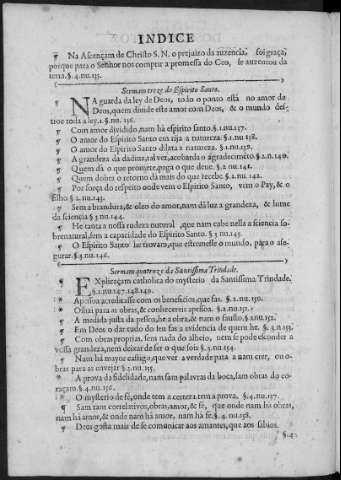 INDICE
¶ Na Ascençam de Christo S. N. o prejuizo da auzencia, foi graça,
porque para o Senhor nos comprir a promessa do Ceo, se auzentou da
terra. §. 4. nu. 135.
Sermam treze do Espirito Santo.
NA guarda da ley de Deos, todo o ponto està no amor da
Deos, quem divide este amor com Deos, & o mundo des-
troe toda a ley. §. nu. 136.
¶ Com amor dividido, nam ha espirito santo. §. 1. nu. 137.
¶ O amor do Espirito Santo em rija a natureza. §. 1. nu. 138.
¶ O amor do Espirito Santo dilata a natureza. §. 1. nu. 139.
¶ A grandeza da dadiva, tal vez, acobarda o agradecimẽto. §. 2. n. 140.
¶ Quem dà o que promete, paga o que deve. §. 2. nu. 141.
¶ Quem dobra o retorno dà mais do que recebe. §. 2. nu. 142.
¶ Por força do respeito onde vem o Espirito Santo, vem o Pay, & o
filho §. 2. nu. 143.
¶ Sem a brandura, & oleo do amor, nam dà luz a grandeza, & lume
da sciencia §. 3 nu. 144.
¶ He tanta a nossa rudeza natural, que nam cabe nella a sciencia so-
brenatural, sem a capacidade do Espirito Santo. §. 3 nu. 145.
¶ O Espirito Santo he trovam, que estremesse o mundo, para o ase-
gurar. §. 4. nu. 146.
Sermam quatorze da Santissima Trindade.
EXplicaçam catholica do mysterio da Santissima Trindade.
§. 1. nu. 147. 148. 149.
* A pessoa acreditasse com os beneficios, que fas. §. 2. nu. 150.
* Olhai para as obras, & conhecereis a pessoa. §. 2. nu. 151.
¶ A medida justa da pessoa, he a obra, & nam o fausto. §. 2. nu. 152.
¶ Em Deos o dar tudo do seu fas a evidencia de quem he. §. 3. n. 153.
¶ Com obras proprias, sem nada do alheio, nem se pode esconder a
vossa grandeza, nem deixar de ser o que sois §. 3. nu. 154.
¶ Nam ha mayor castigo, que ver a verdade para a nam crer, ou o-
bras para as envejar §. 3. nu. 155.
* A prova da fidelidade, nam sam palavras da boca, sam obras do co-
raçam. §. 4. nu. 156.
* O mysterio de fè, onde tem a certeza tem a prova. §. 4. nu. 157.
¶ Sam tam correlativos, obras, amor, & fè, que onde nam ha obras,
nam ha amor, & onde nam ha amor, nam ha fè. §. 4. nu. 158.
¶ Deos gosta mais de se comunicar aos amantes, que aos sabios.
§. 4.